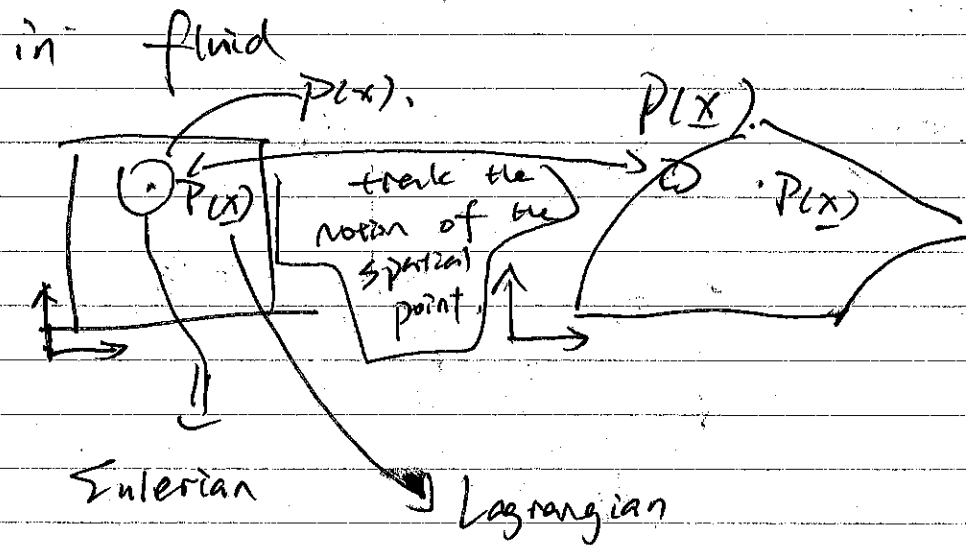 in fluid
P(x).
P(x).
P(x)
track the
motion of the
spatial
point.
P(x)
Eulerian
Lagrangian